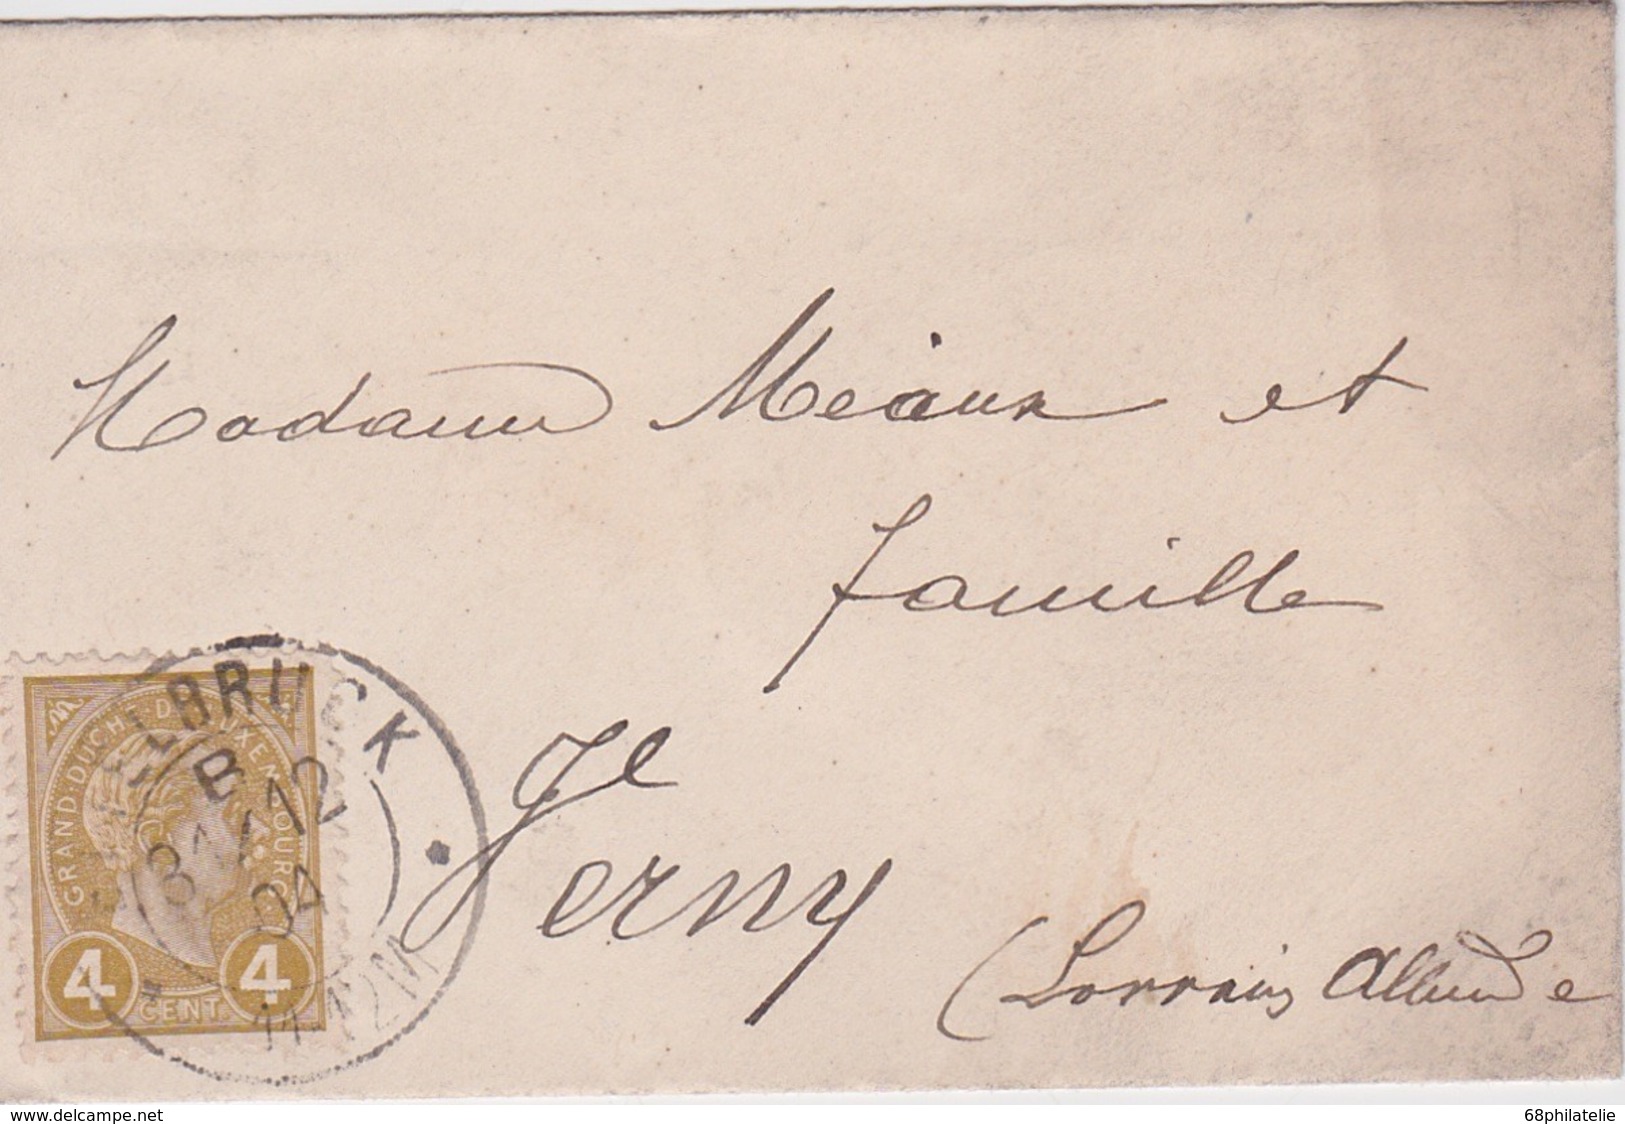 Madame Meaux et
famille
Jerny
(Lorraine Allemde
GRAND-DUCHÉ DE LUXEMBOURG
4 4
CENT.
ELBRUCK
B
31 12
04
11-12M
www.delcampe.net
68philatelie